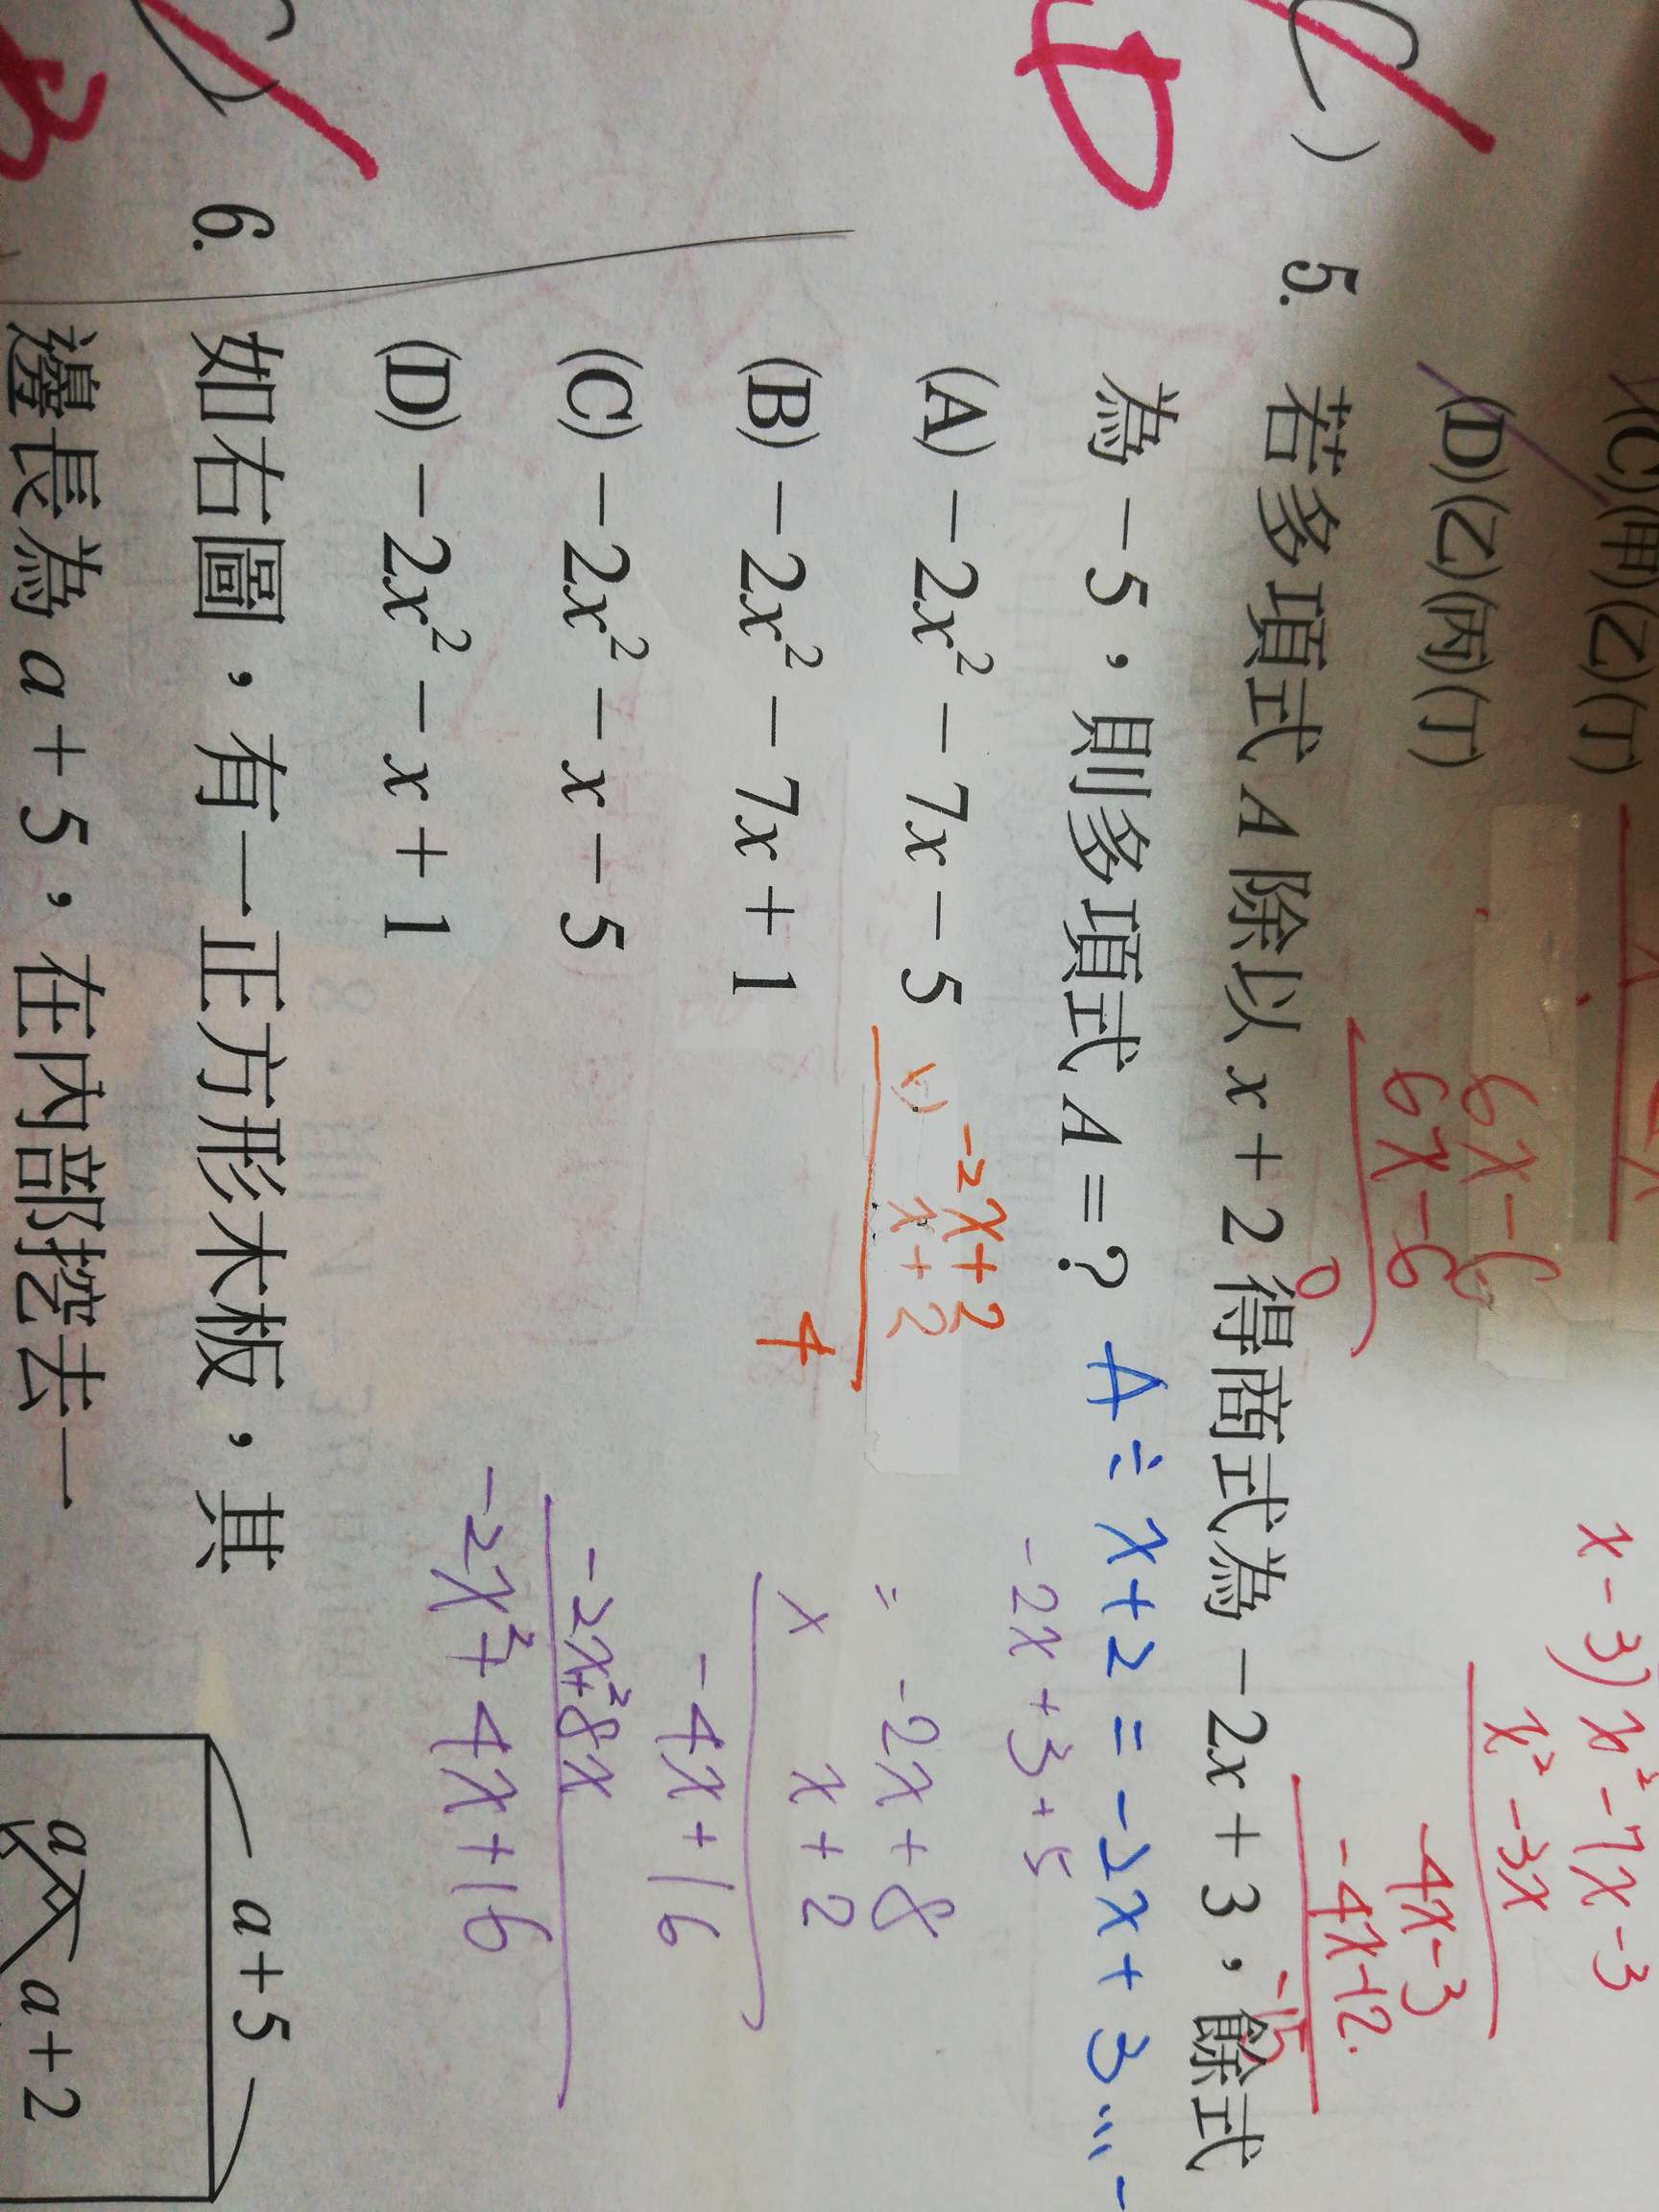 (C)(甲)(乙)(丁)
(D)(乙)(丙)(丁)
x-3)x²-7x-3
x²-3x
-4x-3
-4x+12
-15
6x-6
6x-6
0
(C) 5. 若多項式 A 除以 x + 2 得商式為 -2x + 3，餘式
為 -5，則多項式 A = ? A÷x+2=-2x+3…-
D
(A) -2x² - 7x - 5
(B) -2x² - 7x + 1
(C) -2x² - x - 5
(D) -2x² - x + 1
x) -2x+2
x+2
4
-2x+3+5
= -2x+8
x x+2
-4x+16
-2x²+8x
-2x²+4x+16
6. 如右圖，有一正方形木板，其
邊長為 a + 5，在內部挖去一
B
a+5
a
a+2